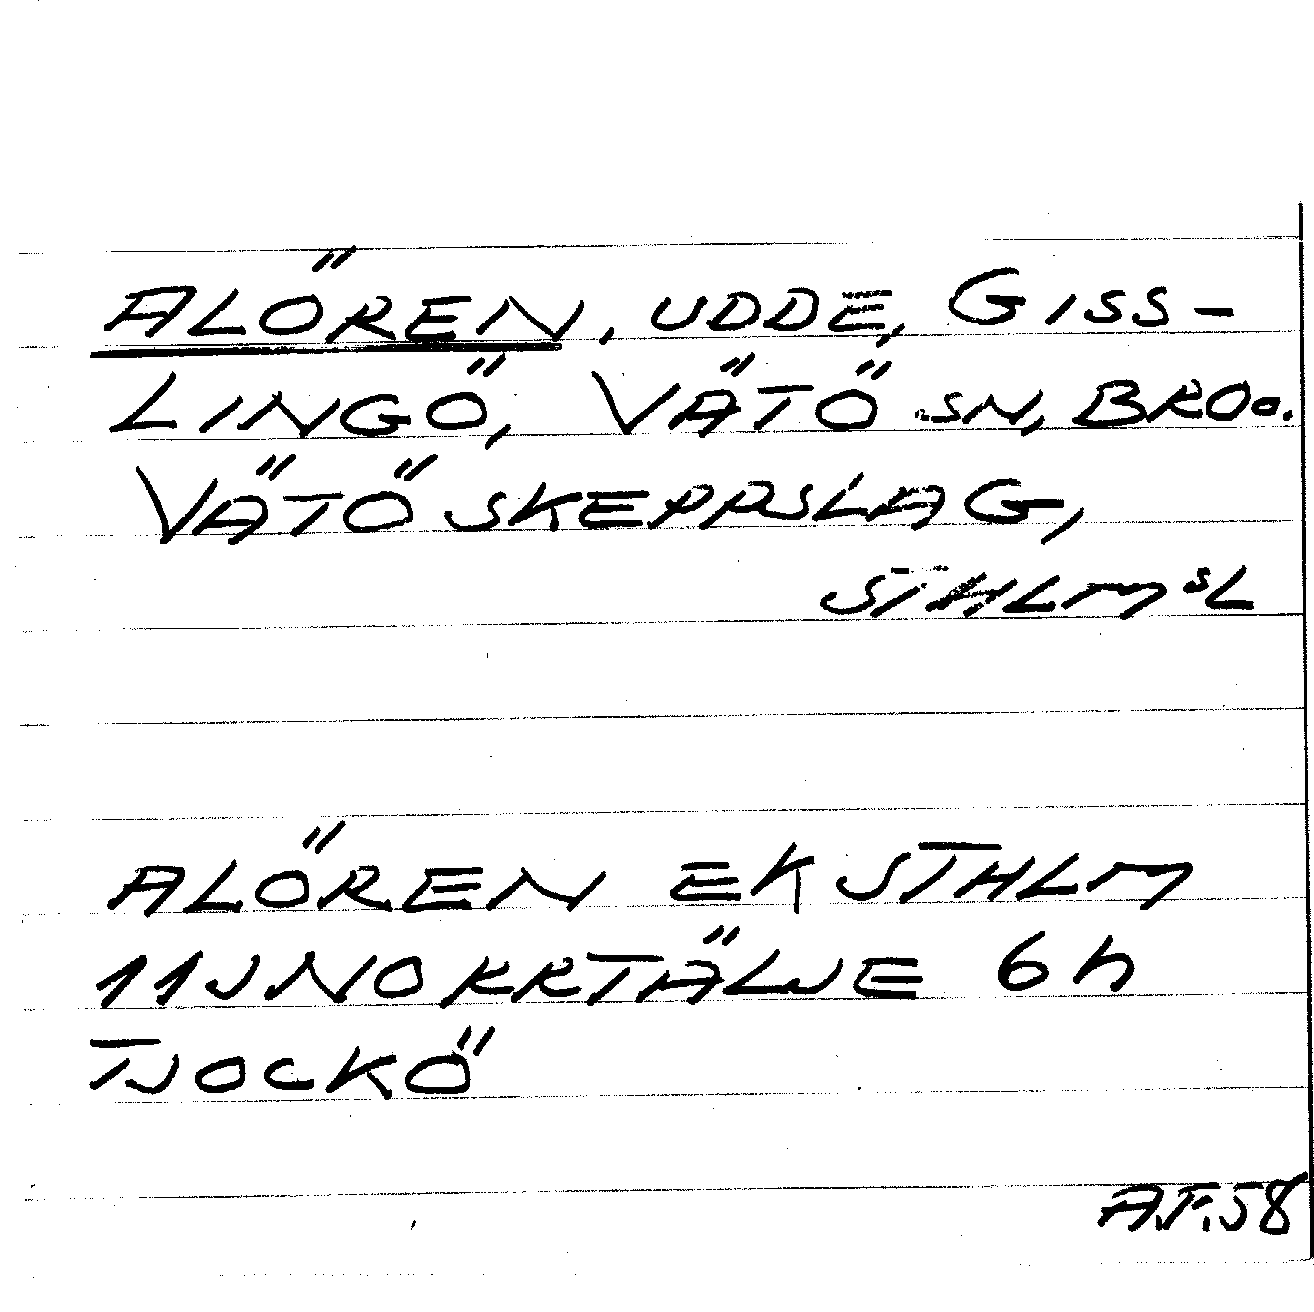 ALÖREN, UDDE, GISS-
LINGÖ, VÄTÖ SN, BRO o.
VÄTÖ SKEPPSLAG,
STHLMˢL
ALÖREN EK STHLM
11J NORRTÄLJE 6h
TJOCKÖ
A.F.58